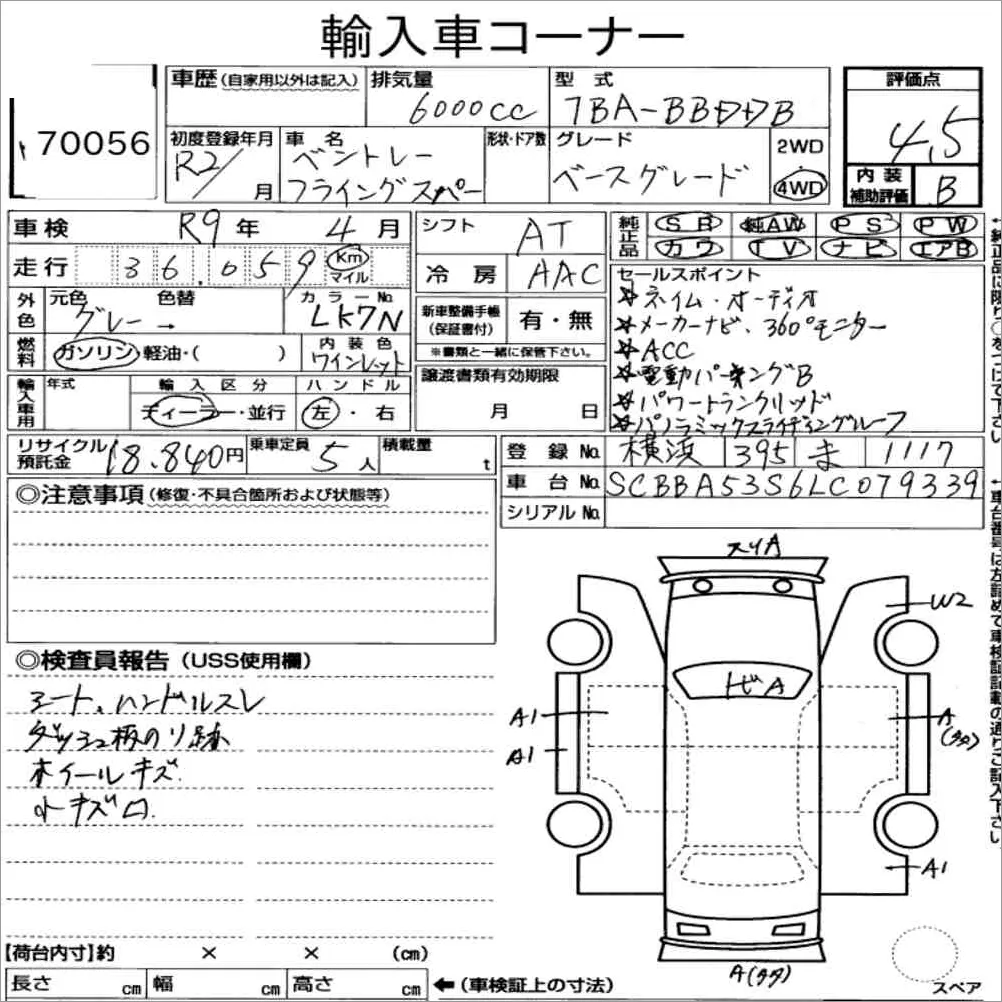 輸入車コーナー
70056
車歴(自家用以外は記入)
排気量
6000cc
型式
7BA-BBDDB
評価点
4.5
初度登録年月
R2/ 月
車名
ベントレー
フライングスパー
形状・ドア数
グレード
ベースグレード
2WD
4WD
内装
補助評価
B
車検 R9年 4月
走行 36,059 Km
マイル
シフト AT
冷房 AAC
純正品
SR 純AW PS PW
カワ TV ナビ エアB
外色
元色 色替
グレー →
カラーNo.
LK7N
新車整備手帳
(保証書付)
有・無
※書類と一緒に保管下さい。
セールスポイント
☆ネイム・オーディオ
☆メーカーナビ、360°モニター
☆ACC
☆電動パーキングB
☆パワートランクリッド
☆パノラミックスライディングルーフ
燃料
ガソリン・軽油・( )
内装色
ワインレット
輸入車用
年式
輸入区分
ディーラー・並行
ハンドル
左・右
譲渡書類有効期限
月 日
リサイクル
預託金
18.840円
乗車定員
5人
積載量
t
登録No. 横浜 395 ま 1117
車台No. SCBBA53S6LC079339
シリアルNo.
◎注意事項(修復・不具合箇所および状態等)
◎検査員報告(USS使用欄)
シート、ハンドルスレ
ダッシュ板のり跡
ホイールキズ
小キズ凹
スリA
W2
トビA
A1
A1
A
A1
【荷台内寸】約 × × (cm)
長さ cm 幅 cm 高さ cm
←(車検証上の寸法)
スペア